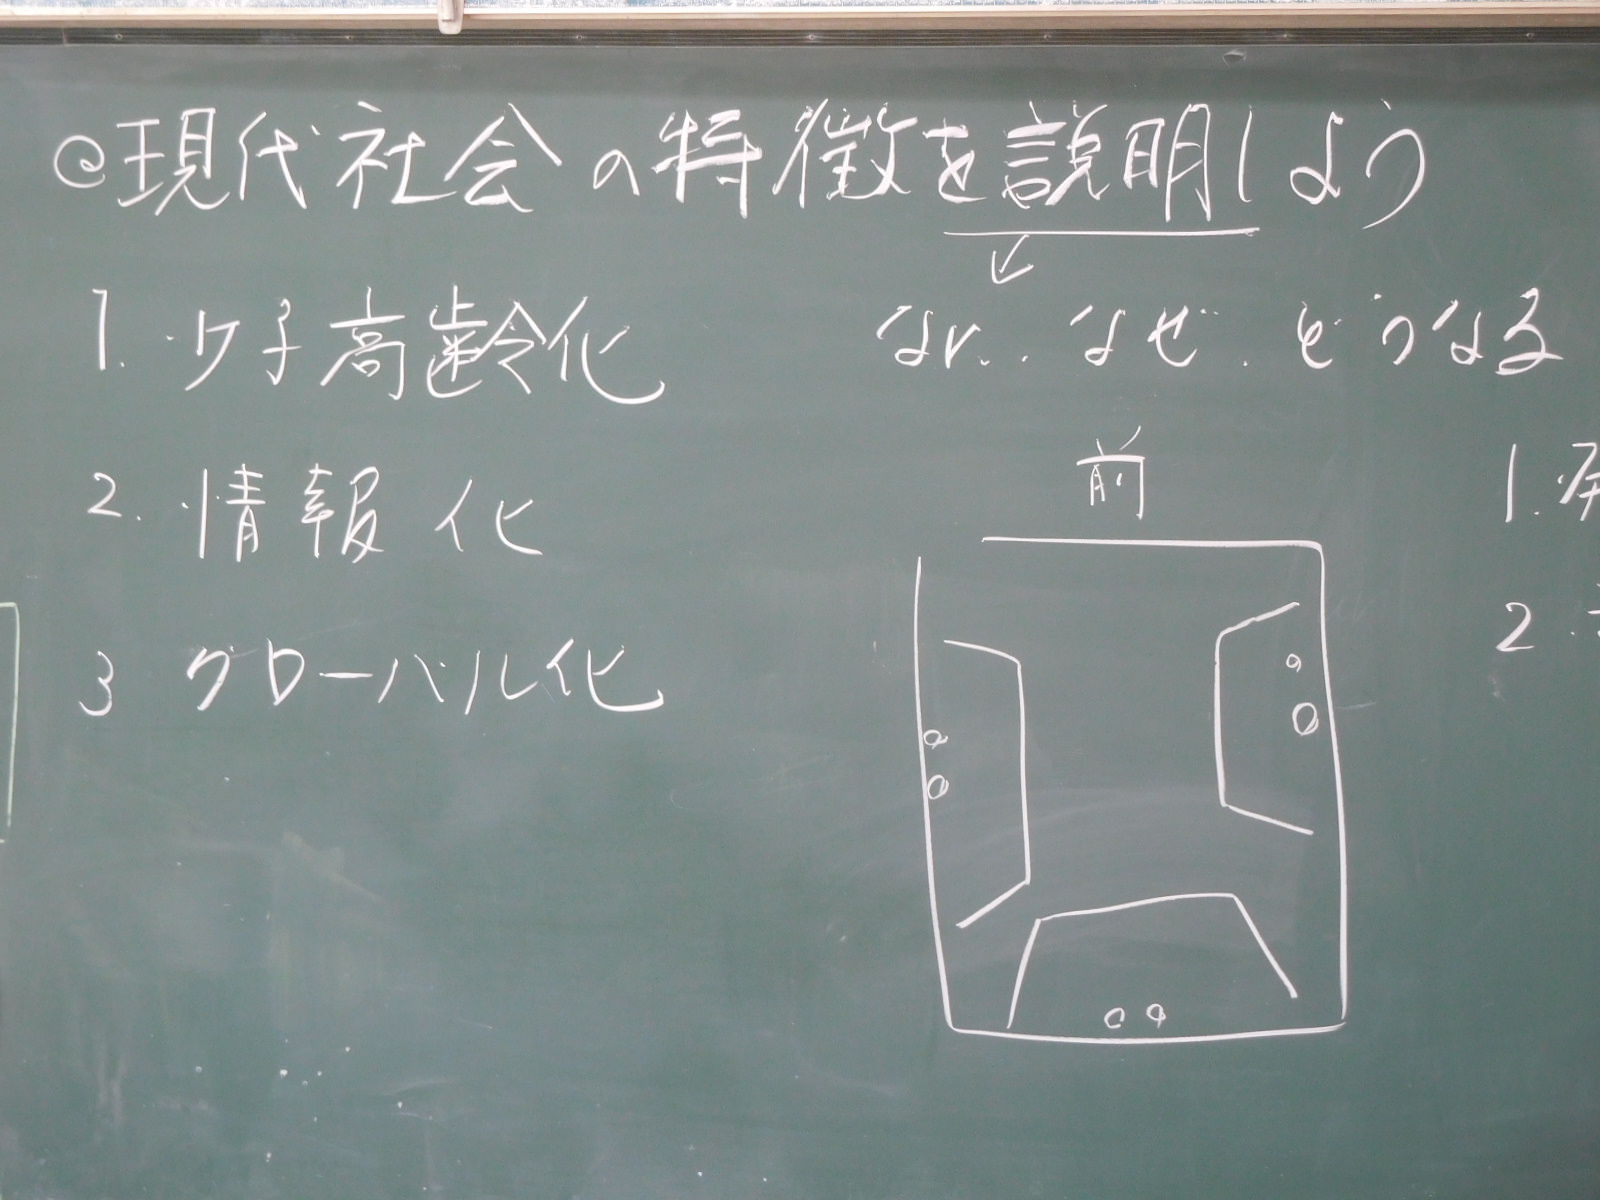 ◎現代社会の特徴を説明しよう
1. 少子高齢化
なに. なぜ. どうなる
2. 情報化
3 グローバル化
前
1.
2.